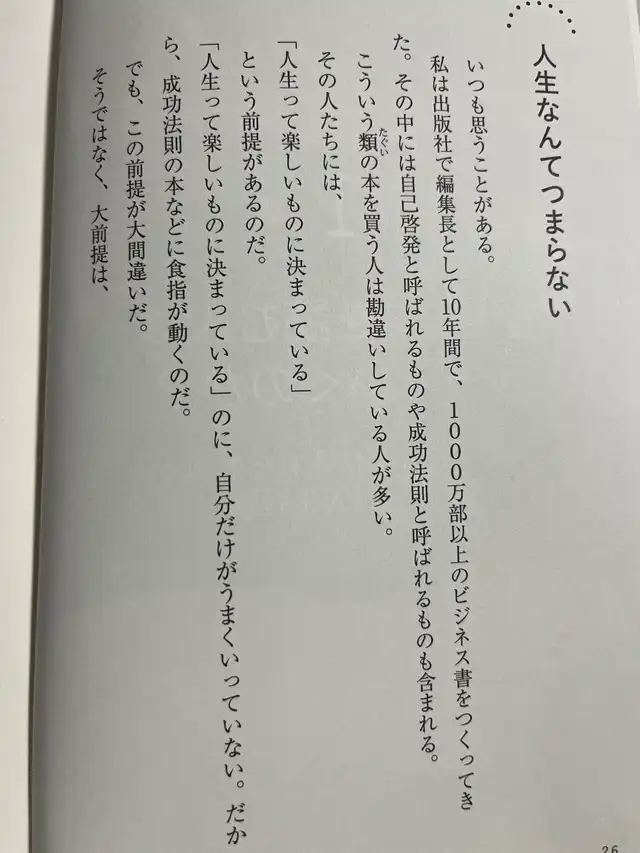 人生なんてつまらない
いつも思うことがある。
私は出版社で編集長として10年間で、1000万部以上のビジネス書をつくってき
た。その中には自己啓発と呼ばれるものや成功法則と呼ばれるものも含まれる。
こういう類の本を買う人は勘違いしている人が多い。
たぐい
その人たちには、
「人生って楽しいものに決まっている」
という前提があるのだ。
「人生って楽しいものに決まっている」のに、自分だけがうまくいっていない。だか
ら、成功法則の本などに食指が動くのだ。
でも、この前提が大間違いだ。
そうではなく、大前提は、
26